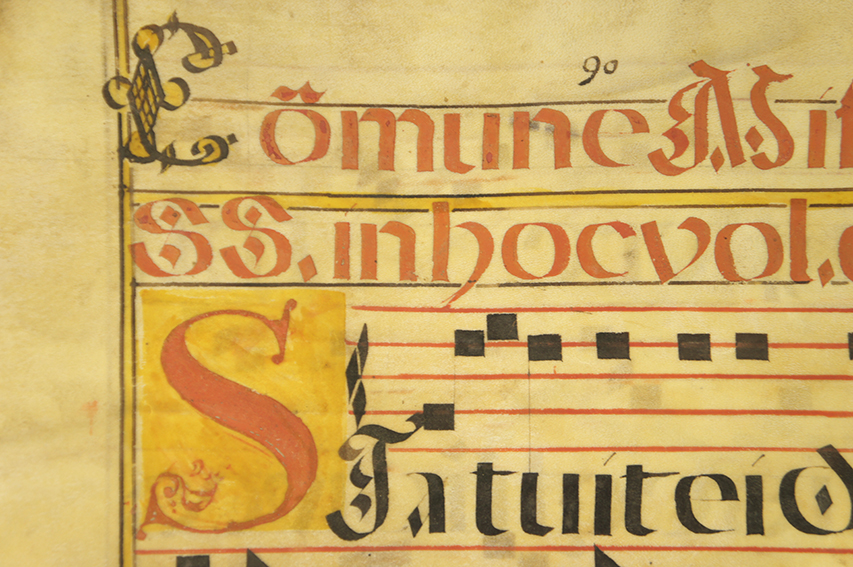 90
Cõmune
SS. in hoc vol.
STatuit ei